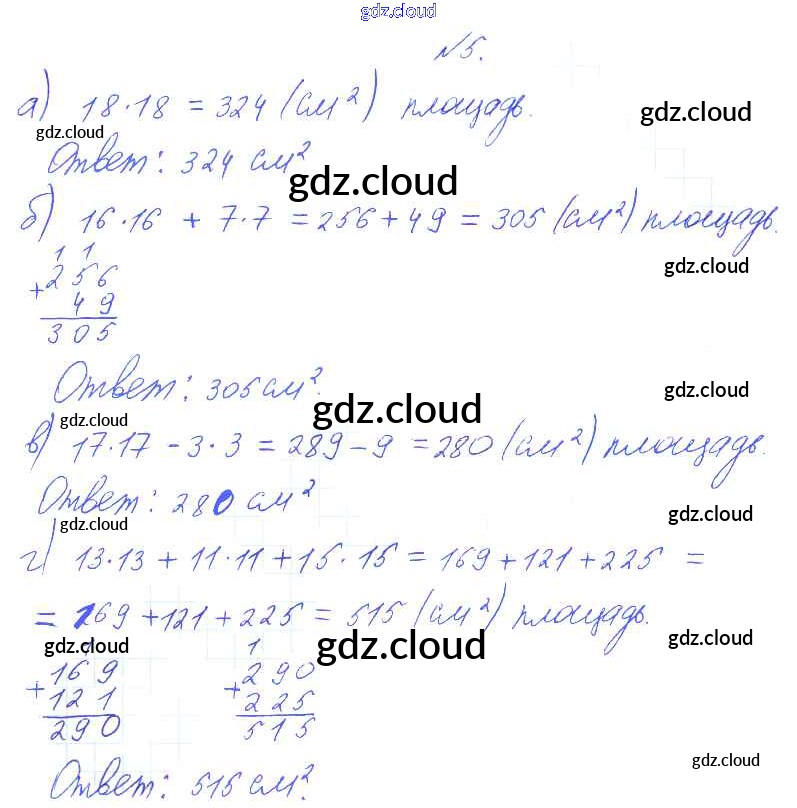 gdz.cloud
№5.
а) 18·18 = 324 (см²) площадь.
gdz.cloud
gdz.cloud
Ответ: 324 см²
gdz.cloud
б) 16·16 + 7·7 = 256 + 49 = 305 (см²) площадь.
1 1
+ 256
49
305
gdz.cloud
Ответ: 305 см².
gdz.cloud
gdz.cloud
gdz.cloud
в) 17·17 - 3·3 = 289 - 9 = 280 (см²) площадь.
Ответ: 280 см²
gdz.cloud
gdz.cloud
г) 13·13 + 11·11 + 15·15 = 169 + 121 + 225 =
= 169 + 121 + 225 = 515 (см²) площадь.
gdz.cloud
gdz.cloud
gdz.cloud
1 1
+ 169 + 290
121 225
290 515
gdz.cloud
Ответ: 515 см².